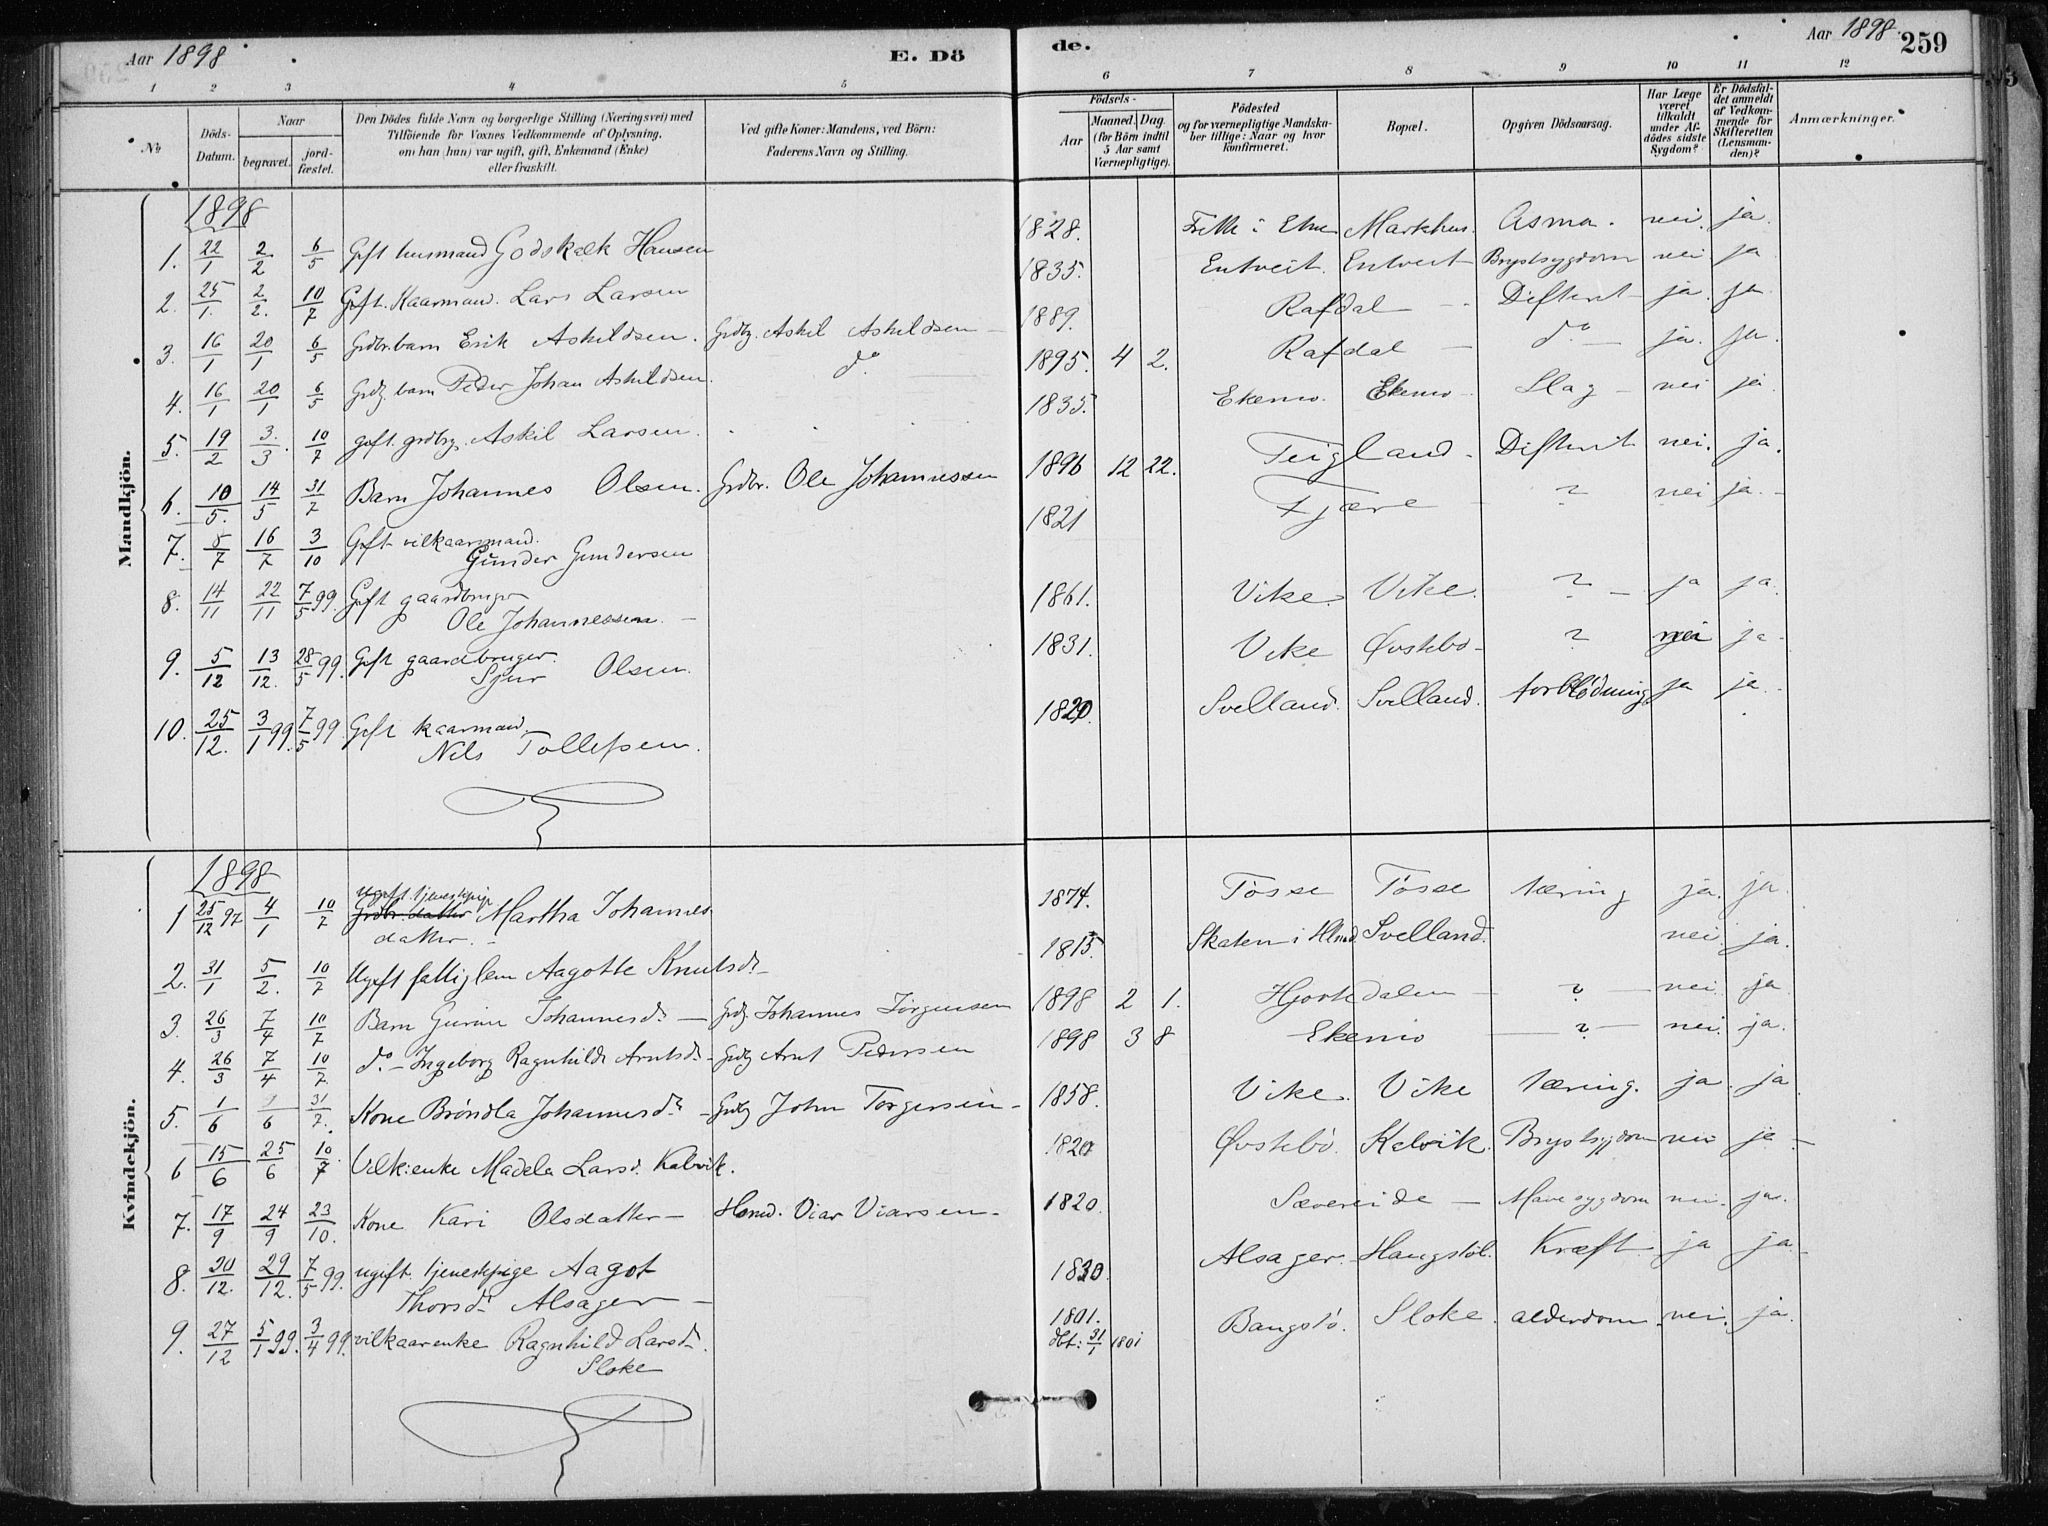 Aar 1898. E. Döde. Aar 1898. 259
1 2 3 4 5 6 7 8 9 10 11 12
No
Döds-Datum.
Naar
begravet.
jord-fæstet.
Den Dödes fulde Navn og borgerlige Stilling (Næringsvei) med
Tilföiende for Voxnes Vedkommende af Oplysning,
om han (hun) var ugift, gift, Enkemand (Enke)
eller fraskilt.
Ved gifte Koner: Mandens, ved Börn:
Faderens Navn og Stilling.
Födsels-
Aar
Maaned. Dag.
(for Börn indtil
5 Aar samt
Værnepligtige).
Födested
og for værnepligtige Mandska-
ber tillige: Naar og hvor
konfirmeret.
Bopæl.
Opgiven Dödsaarsag.
Har Læge
været
tilkaldt
under Af-
dödes sidste
Sygdom?
Er Dödsfal-
det anmeldt
af Vedkom-
mende for
Skifteretten
(Lensman-
den)?
Anmærkninger.
Mandkjön.
1898
1. 22/1 2/2 6/5 Gift husmand Godskalk Hansen 1828. i Etne Markhus. Asma. nei. ja.
2. 25/1. 2/2. 10/7 Gift. Kaarmand. Lars Larsen 1835. Entveit. Entveit Brystsygdom nei ja
3. 16/1 20/1 6/5 Grdbr. barn Erik Askildsen. Grdbr. Askil Askildsen 1889. Rafdal Difterit ja ja
4. 16/1 20/1 6/5 Grdbr barn Peder Johan Askildsen. do 1895. 4 2. Rafdal do ja. ja.
5. 19/2 3/3. 10/7 gift. grdbrg. Askil Larsen. 1835. Ekemo. Ekemo Slag nei ja.
6. 10/5. 14/5 31/7 Barn Johannes Olsen. Grdbr. Ole Johannessen 1896 12 22. Teigland Difterit nei. ja.
7. 8/7 16/7 3/10 Gift vilkaarmand.
Gunder Gundersen 1821 Fjære ? nei ja.
8. 14/11 22/11 7/5 99. Gift gaardbruger
Ole Johannessen. 1861. Vike. Vike. ? ja ja.
9. 5/12 13/12. 28/5 99. Gift gaardbruger.
Sjur Olsen. 1831. Vike Øvstebö ? nei ja.
10. 25/12. 3/1 99. 7/5 99. Gift kaarmand.
Nils Tollefsen. 1820. Svelland. Svelland. forblödning ja ja.
Kvindekjön.
1898
1 25/12 97 4/1 10/7 Ugift tjenestpige
Grdbr. datter Martha Johannes
datter. 1874. Tösse Tösse tæring ja. ja.
2. 31/1 5/2. 10/7 Ugift fattiglem Aagotte Knutsdr 1815. Skaten i Svelland. nei ja.
3. 26/3 7/4 10/7 Barn Gurine Johannesdr Grdbr Johannes Jörgensen 1898 2 1. Hjortedalen ? nei. ja
4. 26/3 7/4 10/7. do Ingeborg Ragnhilde Arntsdr Grdbr Arnt Pedersen 1898 3 8 Ekemo ? nei. ja.
5. 1/6 /6 31/7. Kone Bröndla Johannesdr Grdbr John Torgersen 1858. Vike. Vike tæring. ja. ja
6 15/6 25/6 10/7. Vilk: enke Madela Larsd. Kalvik. 1820 Øvstebö. Kelvik. Brystsygdom nei ja
7. 17/9 24/9 23/10. Kone Kari Olsdatter Hsmd. Viar Viarsen. 1820. Sævereide Mavesygdom nei. ja.
8. 20/12. 29/12. 7/5 99. ugift. tjenestpige Aagot
Thorsdr Alsager 1830. Alsager. Haugstöl. Kræft ja ja.
9. 27/12 5/1 99. 3/4 99. vilkaarenke Ragnhild Larsdr.
Sloke 1801.
dbt: 31/1 1801 Bangstö. Sloke. alderdom nei. ja.